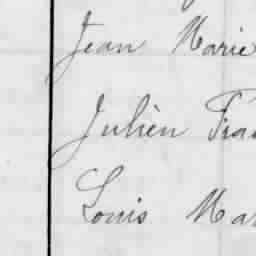 Jean Marie
Julien
Louis